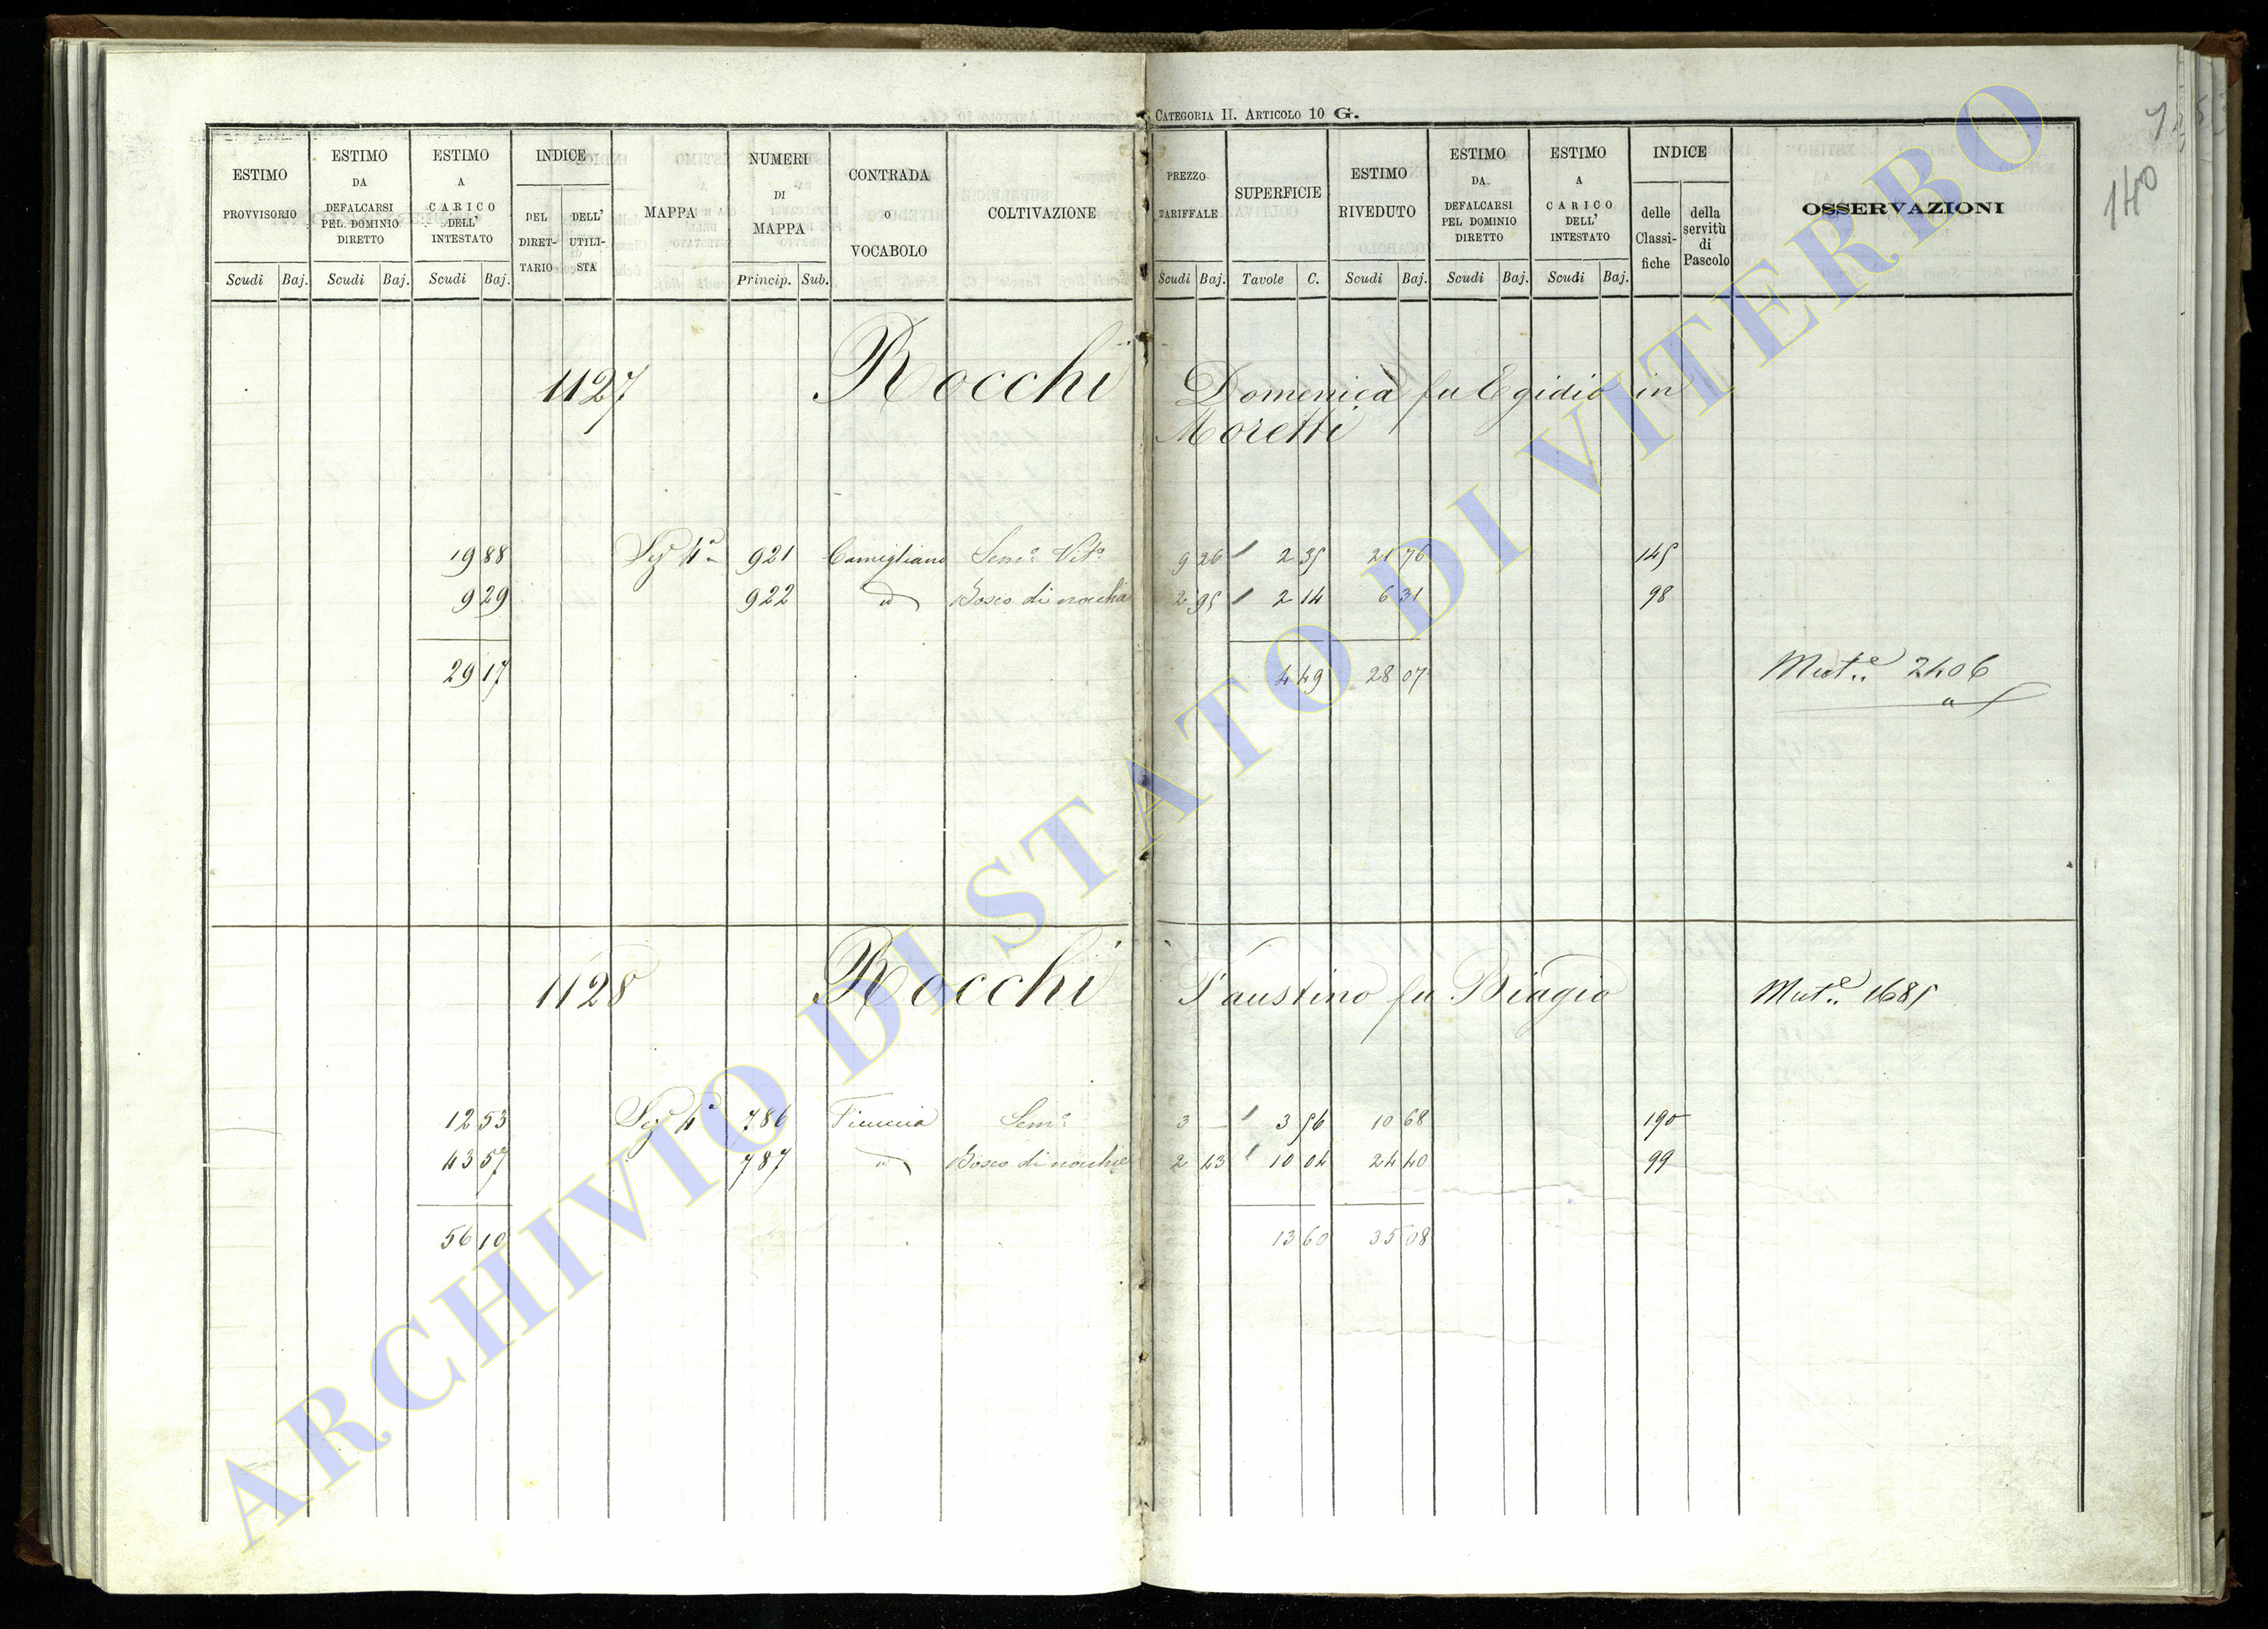 CATEGORIA II. ARTICOLO 10 G.
140
ESTIMO PROVVISORIO
ESTIMO DA DEFALCARSI PEL DOMINIO DIRETTO
ESTIMO A CARICO DELL' INTESTATO
INDICE
DEL DIRET-TARIO
DELL' UTILI-STA
MAPPA
NUMERI DI MAPPA
CONTRADA o VOCABOLO
COLTIVAZIONE
PREZZO TARIFFALE
SUPERFICIE
ESTIMO RIVEDUTO
ESTIMO DA DEFALCARSI PEL DOMINIO DIRETTO
ESTIMO A CARICO DELL' INTESTATO
INDICE
delle Classi-fiche
della servitù di Pascolo
OSSERVAZIONI
Scudi Baj. Scudi Baj. Scudi Baj. Princip. Sub. Scudi Baj. Tavole C. Scudi Baj. Scudi Baj. Scudi Baj.
1127 Rocchi Domenica fu Egidio in
Moretti
19 88 Sez 4ª 921 Camigliano Sem.º Vit.º 9 26 2 35 21 76 145
9 29 922 id Bosco di nocchie 2 95 2 14 6 31 98
29 17 4 49 28 07 Mut.e 2406
1128 Rocchi Faustino fu Biagio Mut.e 1685
12 53 Sez 4ª 786 Sem.º 3 — 3 56 10 68 190
43 57 787 id Bosco di nocchie 2 43 10 04 24 40 99
56 10 13 60 35 08
ARCHIVIO DI STATO DI VITERBO